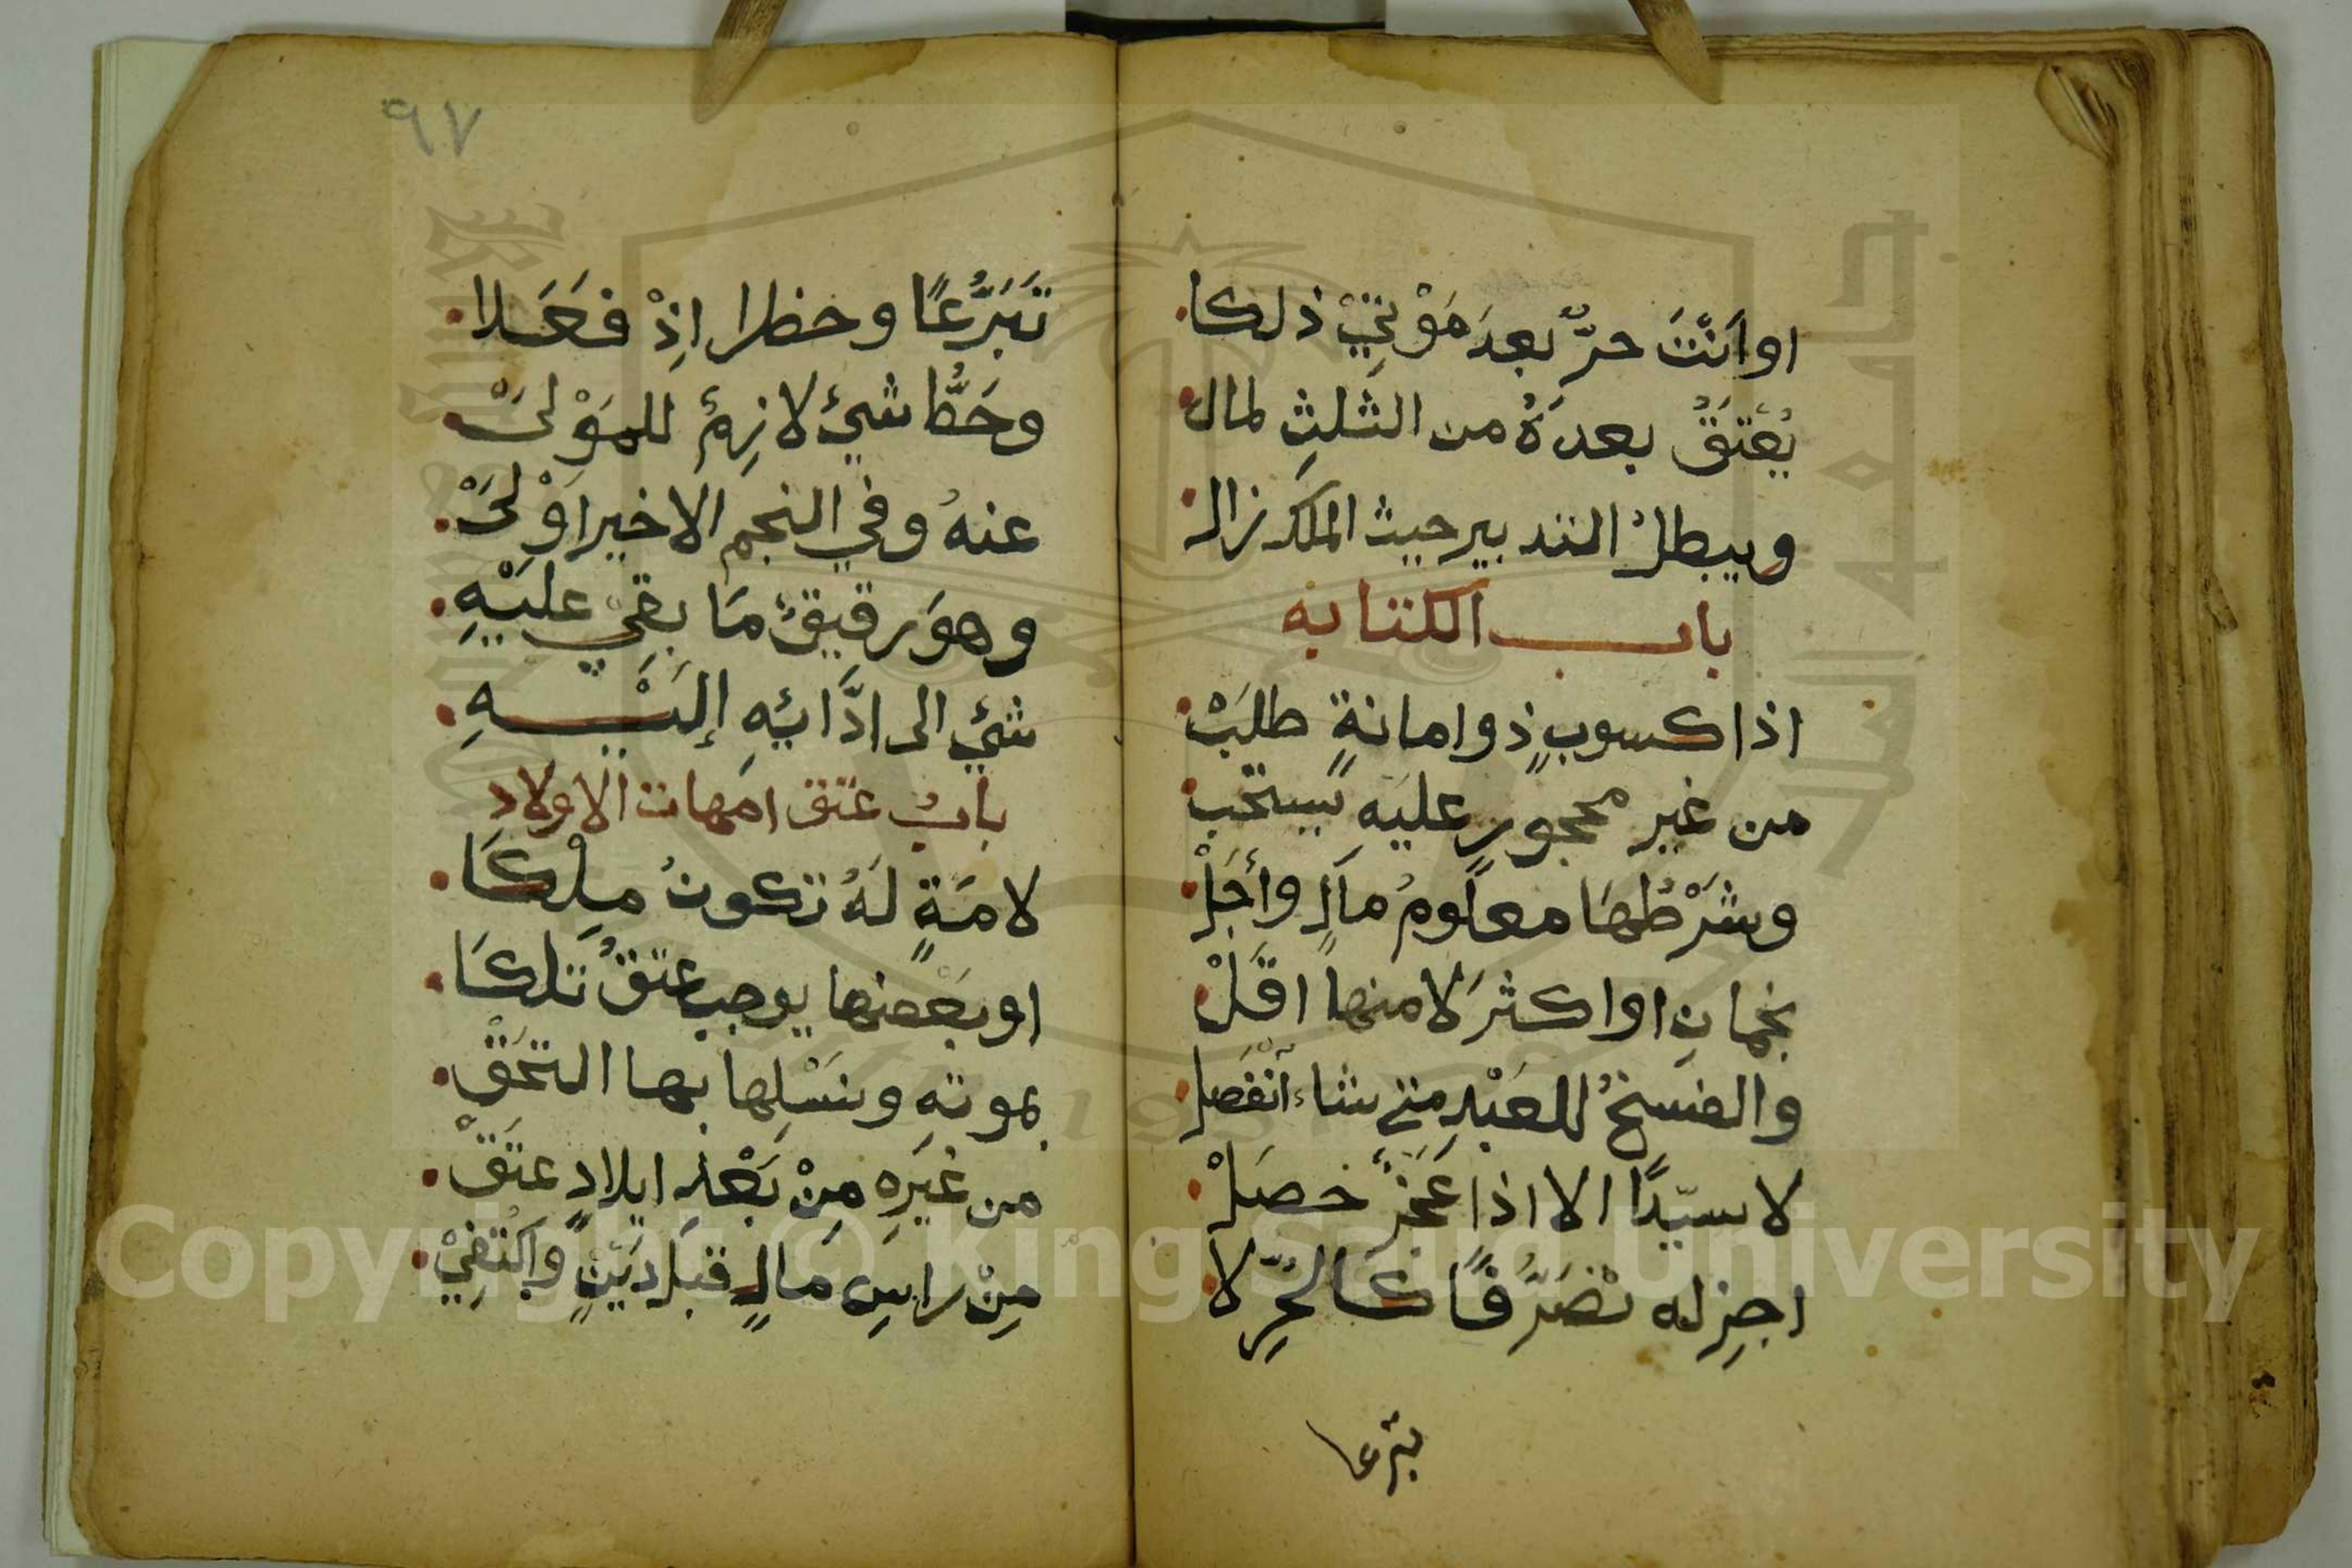 او اَنْتَ حرٌّ بعدَ مَوْتِيْ ذلكا
يُعْتَقُ بعدَهُ من الثلثِ لمال
ويبطلُ التدبير حيث الملك زال
باب الكتابه
اذا كسوبٍ ذو امانةٍ طلَبْ
من غير محجورٍ عليه يستحب
وشَرْطُهَا معلومُ مالٍ وأجَلْ
نجمانِ او اكثرَ لا منها اقَلْ
والفسخُ للعَبْدِ متى شاء انْفَصَل
لا سيّدًا الا اذا عَجْزٌ حصَلْ
اجِز له تَصَرُّفًا كَالحُرِّ لا
تبرعا
٩٧
تَبَرُّعًا وخطرا اِذْ فعَلا
وحَطُّ شيءٍ لازِمٌ للمَوْلىَ
عنهُ وفي النجم الاخير اوْلَىْ
وهوَ رقيقٌ مَا بقيْ عليْهِ
شيءٌ الى ادَّائِهِ إلَيْهِ
بابُ عتق امهات الاولاد
لامَةٍ لَهُ تكونُ مِلْكَا
او بَعْضها يوجب عتقُ تَلكَا
بموتهِ ونَسْلِها بها التحَقْ
من غيَرِهِ مِنْ بَعْدِ ايلادٍ عتَقْ
مِنْ راسِ مَالٍ قبلَ ديْنٍ وَاكْتُفِيْ
Copyright © King Saud University